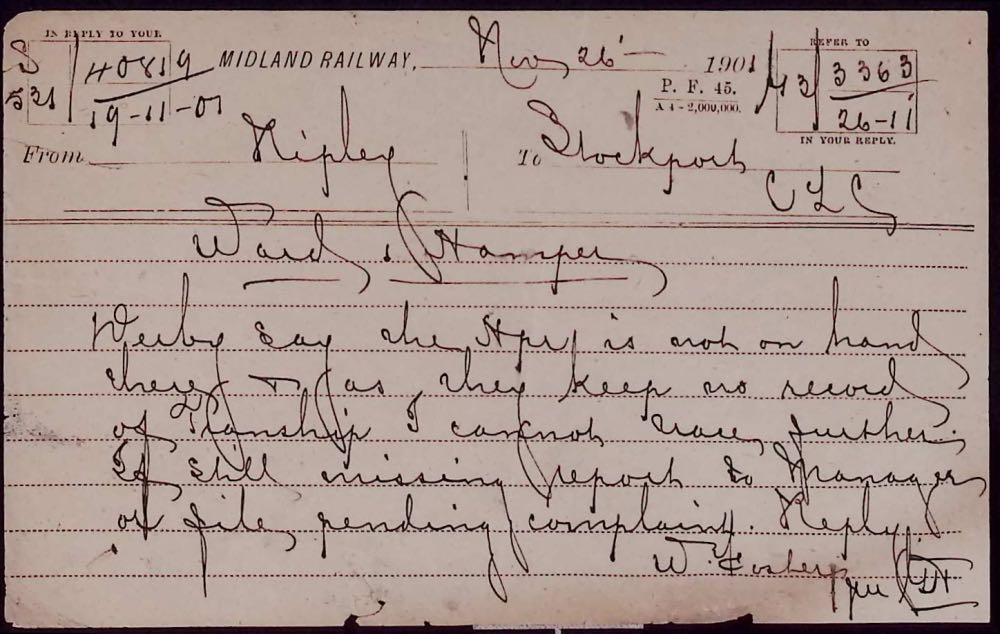 IN REPLY TO YOUR
S 521 / 40819
19-11-01
MIDLAND RAILWAY, Nov 26 1901
P. F. 45.
A 4 - 2,000,000.
REFER TO
3363
26-11
IN YOUR REPLY.
From Ripley To Stockport
CLC
Ward, Hamper
Derby say the Hpr is not on hand
there & as they keep no record
of Tranship I cannot trace further.
If still missing report to Manager
or file pending complaint. Reply
W. Foster